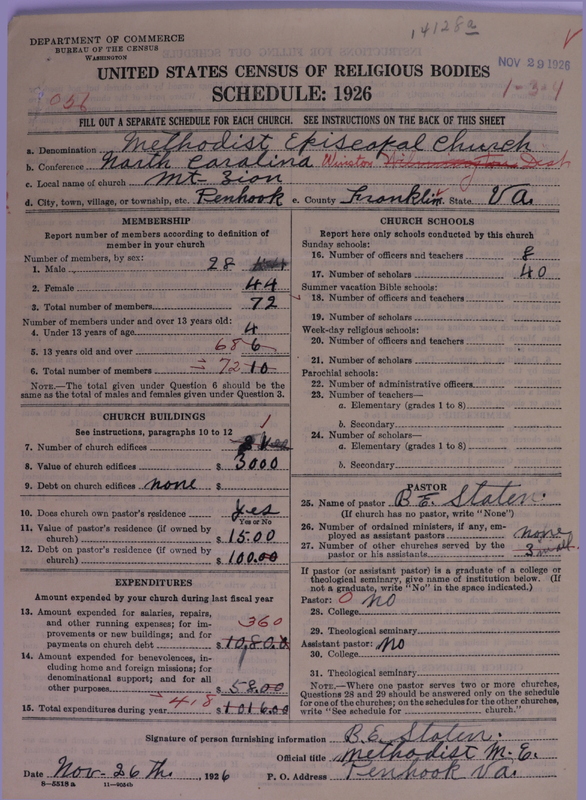 14128a
DEPARTMENT OF COMMERCE
BUREAU OF THE CENSUS
WASHINGTON
NOV 29 1926
UNITED STATES CENSUS OF RELIGIOUS BODIES
1-3-4
SCHEDULE: 1926
FILL OUT A SEPARATE SCHEDULE FOR EACH CHURCH. SEE INSTRUCTIONS ON THE BACK OF THIS SHEET
a. Denomination Methodist Episcopal Church
b. Conference North Carolina Winston Dist
c. Local name of church Mt. Zion
d. City, town, village, or township, etc. Penhook e. County Franklin State Va.
MEMBERSHIP
Report number of members according to definition of
member in your church
Number of members, by sex:
1. Male 28
2. Female 44
3. Total number of members 72
Number of members under and over 13 years old:
4. Under 13 years of age 4
5. 13 years old and over 68 6
6. Total number of members = 72 10
NOTE.—The total given under Question 6 should be
same as the total of males and females given under Question 3.
CHURCH BUILDINGS
See instructions, paragraphs 10 to 12
7. Number of church edifices 1
8. Value of church edifices $ 3000
9. Debt on church edifices none $
10. Does church own pastor's residence yes
Yes or No
11. Value of pastor's residence (if owned by
church) $ 15.00
12. Debt on pastor's residence (if owned by
church) $ 100.00
EXPENDITURES
Amount expended by your church during last fiscal year
13. Amount expended for salaries, repairs,
and other running expenses; for im-
provements or new buildings; and for
payments on church debt 360 $
14. Amount expended for benevolences, in-
cluding home and foreign missions; for
denominational support; and for all
other purposes $ 58.00
15. Total expenditures during year = 418 $ 1016.00
CHURCH SCHOOLS
Report here only schools conducted by this church
Sunday schools:
16. Number of officers and teachers 8
17. Number of scholars 40
Summer vacation Bible schools:
18. Number of officers and teachers
19. Number of scholars
Week-day religious schools:
20. Number of officers and teachers
21. Number of scholars
Parochial schools:
22. Number of administrative officers
23. Number of teachers—
a. Elementary (grades 1 to 8)
b. Secondary
24. Number of scholars—
a. Elementary (grades 1 to 8)
b. Secondary
PASTOR
25. Name of pastor B. E. Staten.
(If church has no pastor, write "None")
26. Number of ordained ministers, if any, em-
ployed as assistant pastors none
27. Number of other churches served by the
pastor or his assistants 3
If pastor (or assistant pastor) is a graduate of a college or
theological seminary, give name of institution below. (If
not a graduate, write "No" in the space indicated.)
Pastor: 0 no
28. College
29. Theological seminary
Assistant pastor: No
30. College
31. Theological seminary
NOTE.—Where one pastor serves two or more churches,
Questions 28 and 29 should be answered only on the schedule
for one of the churches; on the schedules for the other churches,
write "See schedule for church."
Signature of person furnishing information B. E. Staten.
Official title Methodist M. E.
Date Nov. 26 th, 1926 P. O. Address Penhook Va.
8—5518a 11—9054b